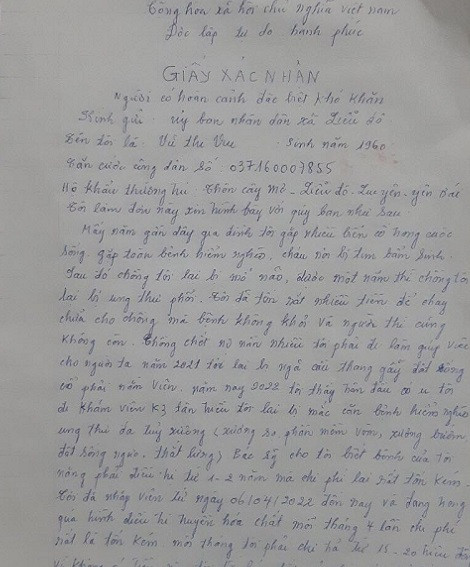 Cộng hòa xã hội chủ nghĩa việt nam
Độc lập tự do hạnh phúc
GIẤY XÁC NHẬN
Người có hoàn cảnh đặc biệt khó khăn
Kính gửi : ủy ban nhân dân xã Liễu đô
Tên tôi là : Vũ thị Vui Sinh năm 1960
Căn cước công dân số : 037160007855
Hộ khẩu thường trú - Thôn cây mơ - Liễu đô - Lục yên - yên bái
Tôi làm đơn này xin trình bày với qúy ban như sau
Mấy năm gần đây gia đình tôi gặp nhiều biến cố trong cuộc
sống gặp toàn bệnh hiểm nghèo, cháu nội bị tim bẩm sinh
Sau đó chồng tôi lại bị mổ não, được một năm thì chồng tôi
lại bị ung thư phổi. Tôi đã tốn rất nhiều tiền để chạy
chữa cho chồng mà bệnh không khỏi và người thì cũng
không còn. Chồng chết nợ nần nhiều tôi phải đi làm giúp việc
cho người ta năm 2021 tôi lại bị ngã cầu thang gẫy đốt sống
cổ phải nằm viện. năm nay 2022 tôi thấy trên đầu có u tôi
đi khám viện K3 tân triều tôi lại bị mắc căn bệnh hiểm nghèo
ung thư đa tuỷ xương (xương sọ phần mềm vòm, xương sườn
đốt sống ngực, thắt lưng) Bác sỹ cho tôi biết bệnh của tôi
nặng phải điều trị từ 1-2 năm mà chi phí lại rất tốn kém.
Tôi đã nhập viện từ ngày 06/04/2022 đến nay và đang trong
quá trình điều trị truyền hóa chất mỗi tháng 4 lần chi phí
rất là tốn kém mỗi tháng tôi phải chi trả từ 15-20 triệu đồng